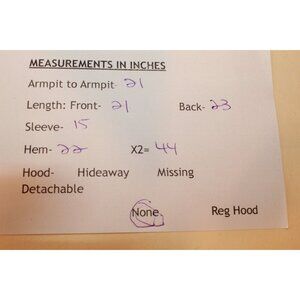 MEASUREMENTS IN INCHES
Armpit to Armpit- 21
Length: Front- 21 Back- 23
Sleeve- 15
Hem- 22 X2= 44
Hood- Hideaway Missing
Detachable
None Reg Hood